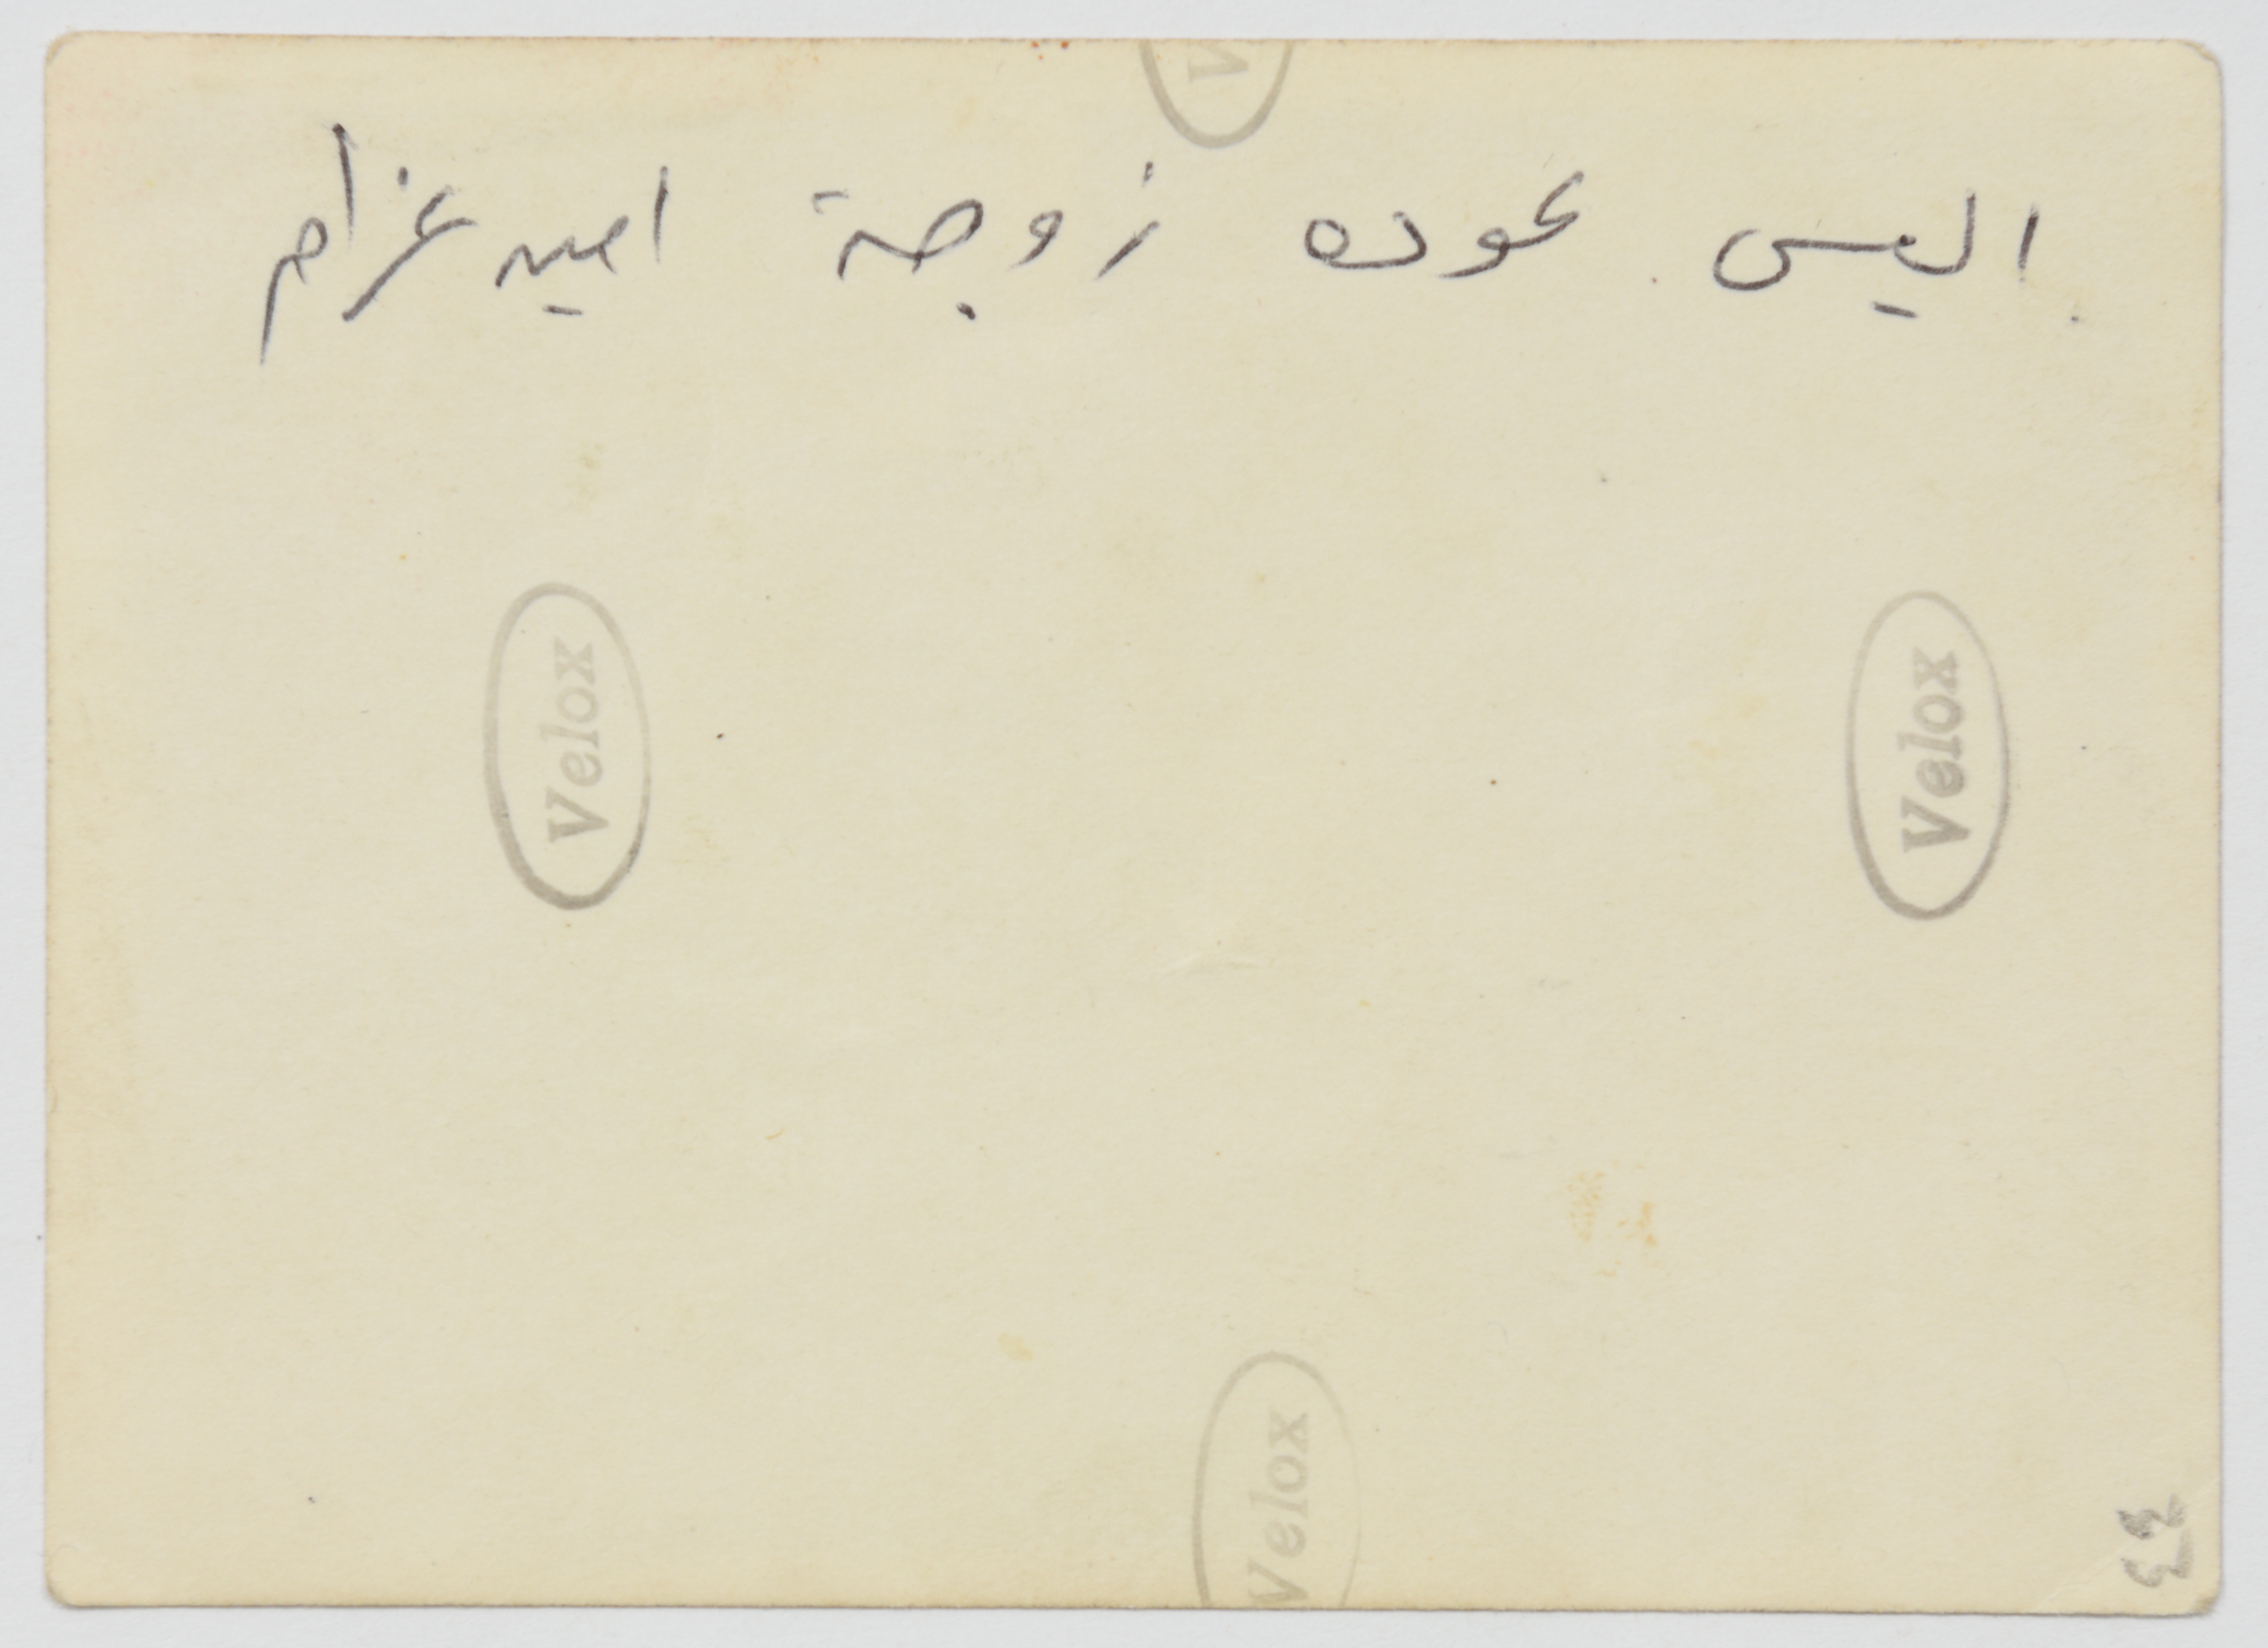 اليس عوده زوجة امين عزام
Velox
Velox
Velox